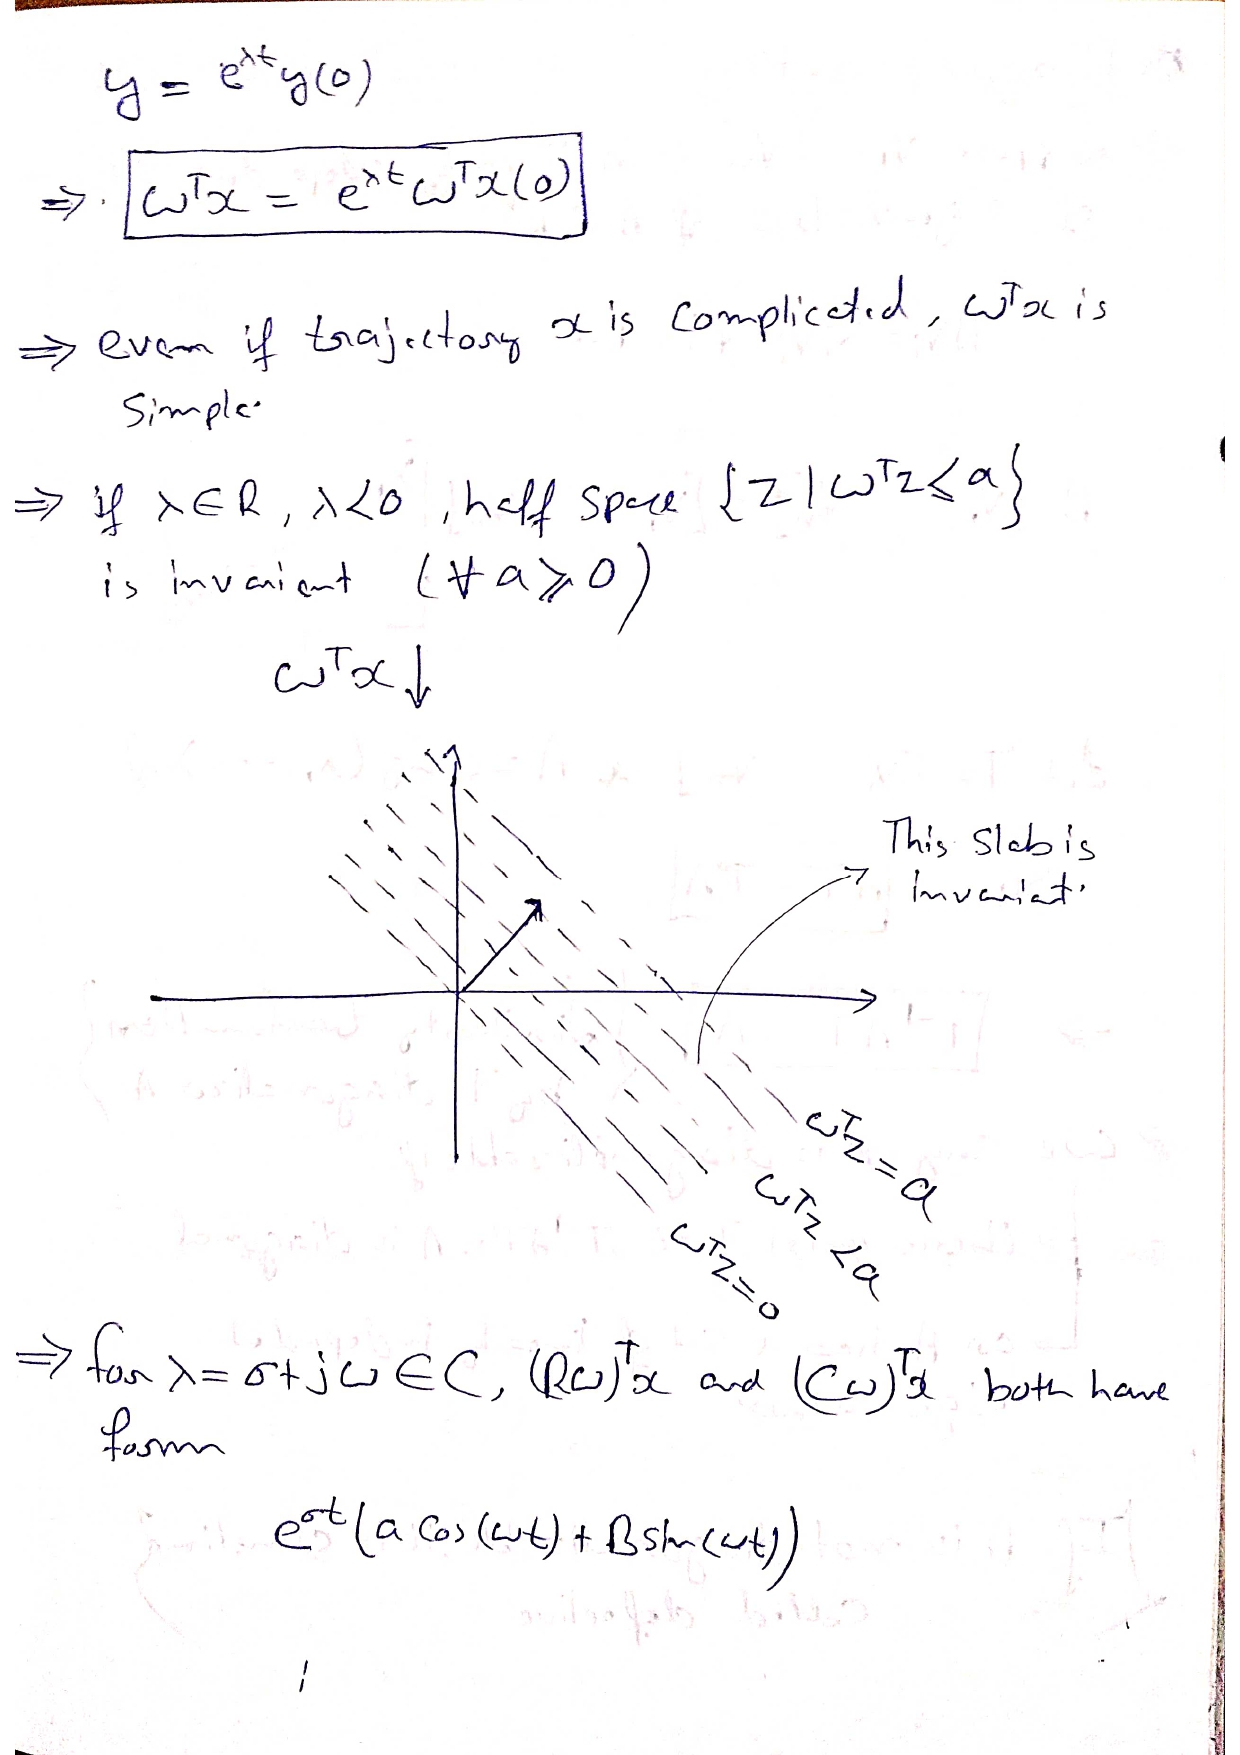 y = e^λt y(0)
⇒ ωᵀx = e^λt ωᵀx(0)
⇒ even if trajectory x is complicated, ωᵀx is
simple.
⇒ if λ∈R, λ<0, half space {z | ωᵀz ≤ a}
is invariant (∀ a ≥ 0)
ωᵀx ↓
This slab is
invariat.
ωᵀz = a
ωᵀz < a
ωᵀz = 0
⇒ for λ = σ + jω ∈ C, (Rω)ᵀx and (Cω)ᵀx both have
form
e^σt (a cos(ωt) + B sin(ωt))